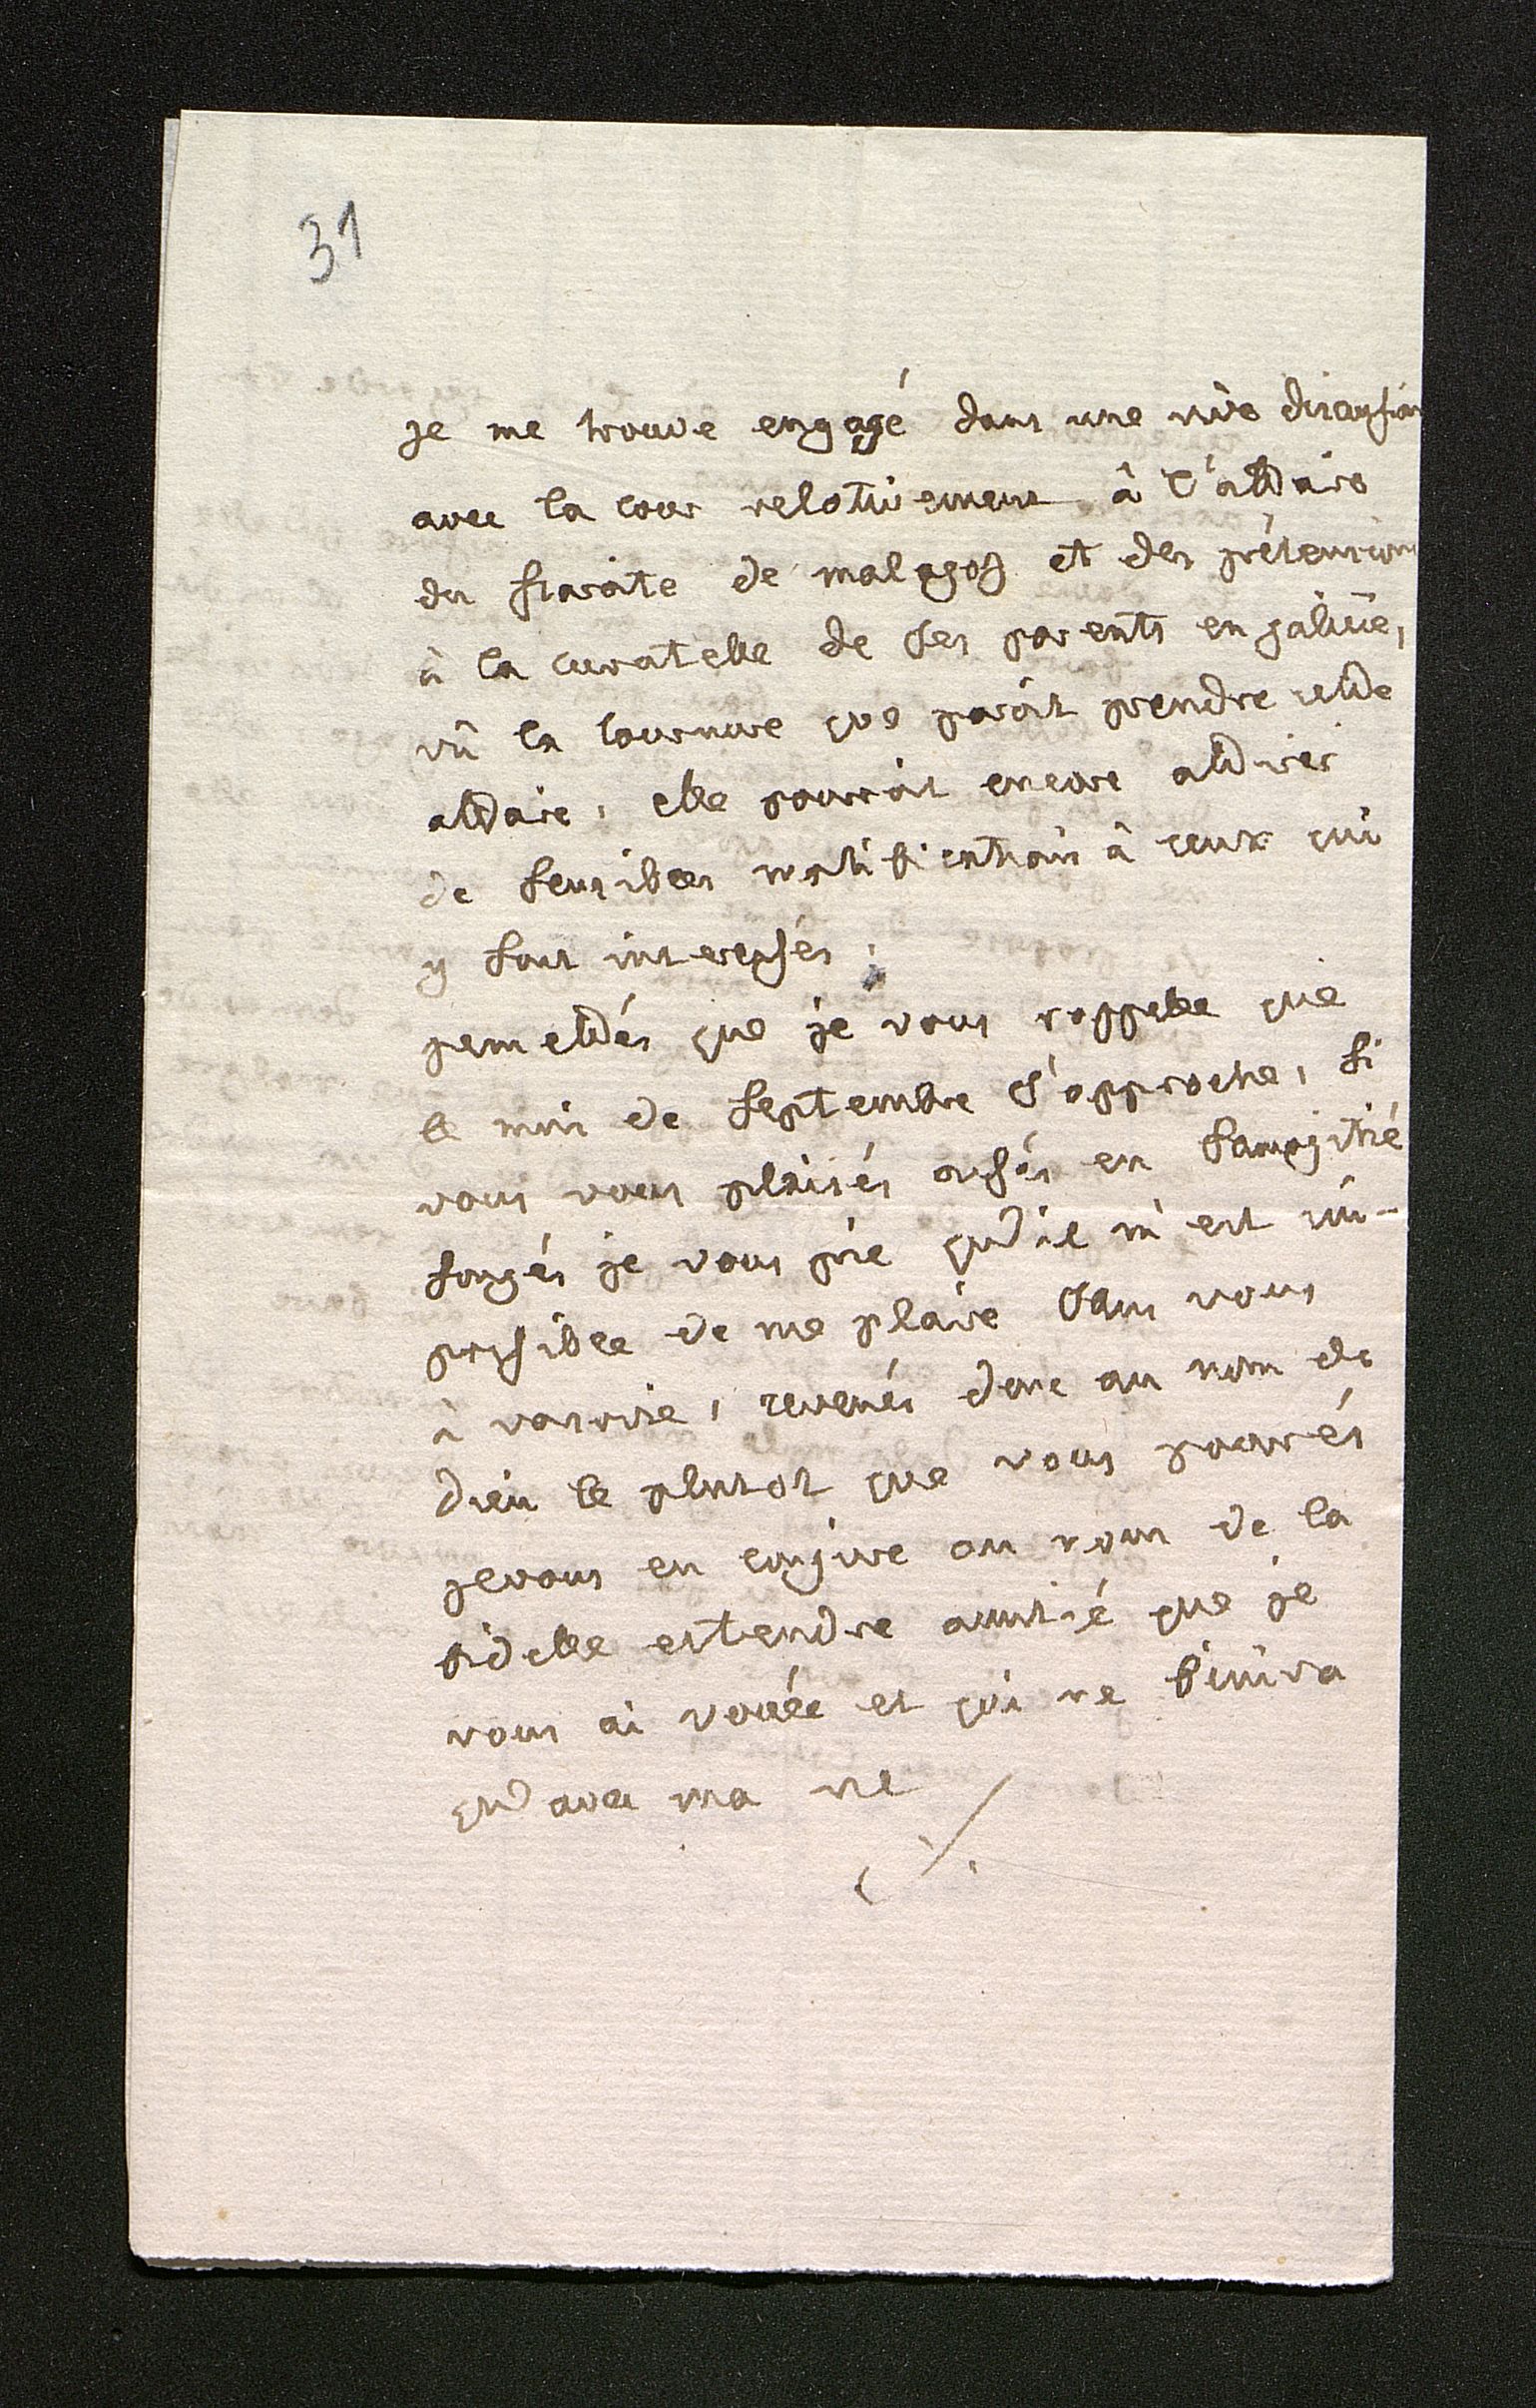 31
je me trouve engagé dans une vive discussion
avec la cour relativement à l'affaire
du staroste de malagosz et des prétentions
à la curatelle de ses parents en galicie,
vû la tournure que paroit prendre cette
affaire, elle pourroit encore attirer
de sensibles mortifications à ceux qui
y sont interessés.
permettés que je vous rappelle que
le mois de septembre s'approche, si
vous vous plaisés assés en samogitie
songés je vous prie qu'il m'est im-
possible de me plaire sans vous
à varsovie, revenés donc au nom de
dieu le plutot que vous pourrés
je vous en conjure au nom de la
fidelle et tendre amitié que je
vous ai vouée et qui ne finira
qu'avec ma vie